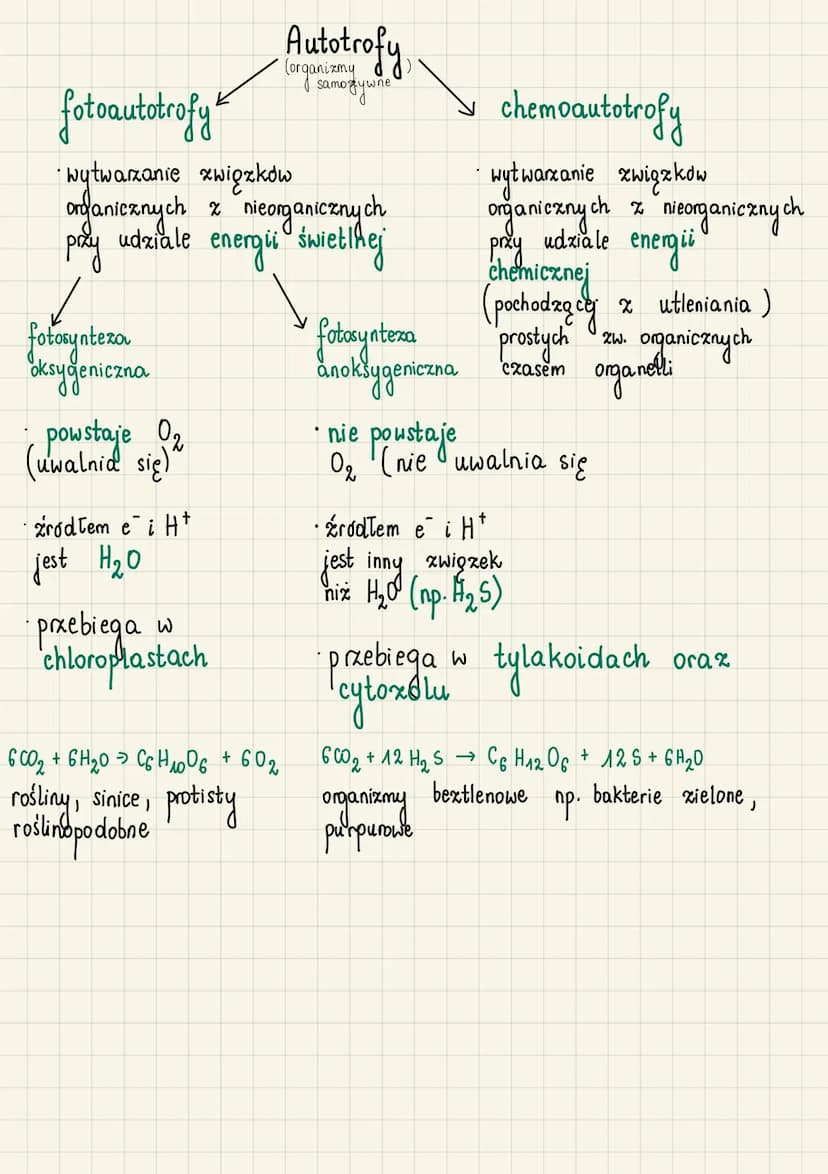 Autotrofy
(organizmy samożywne)
fotoautotrofy
· wytwarzanie związków
organicznych z nieorganicznych
przy udziale energii świetlnej
chemoautotrofy
· wytwarzanie związków
organicznych z nieorganicznych
przy udziale energii
chemicznej
(pochodzącej z utleniania)
prostych zw. organicznych
czasem organelli
fotosynteza
oksygeniczna
· powstaje O₂
(uwalnia się)
· źródłem e⁻ i H⁺
jest H₂O
· przebiega w
chloroplastach
6CO₂ + 6H₂O → C₆H₁₀O₆ + 6O₂
rośliny, sinice, protisty
roślinopodobne
fotosynteza
anoksygeniczna
· nie powstaje
O₂ (nie uwalnia się
· źródłem e⁻ i H⁺
jest inny związek
niż H₂O (np. H₂S)
· przebiega w tylakoidach oraz
cytozolu
6CO₂ + 12H₂S → C₆H₁₂O₆ + 12S + 6H₂O
organizmy beztlenowe np. bakterie zielone,
purpurowe